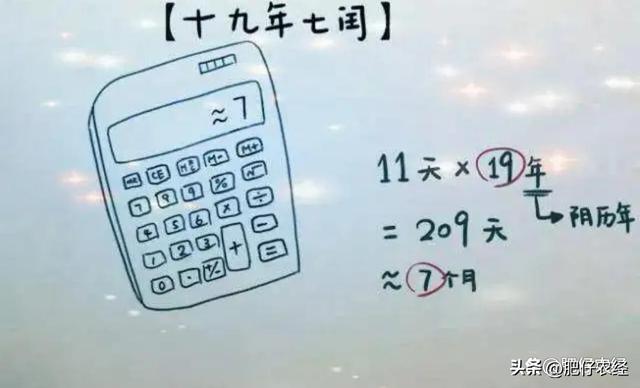 【十九年七闰】
≈7
MR CE M- M+
7 8 9 % √
4 5 6 × ÷
1 2 3 + −
0 · +/− =
11天×19年
阴历年
=209天
≈7个月
头条@肥仔农经